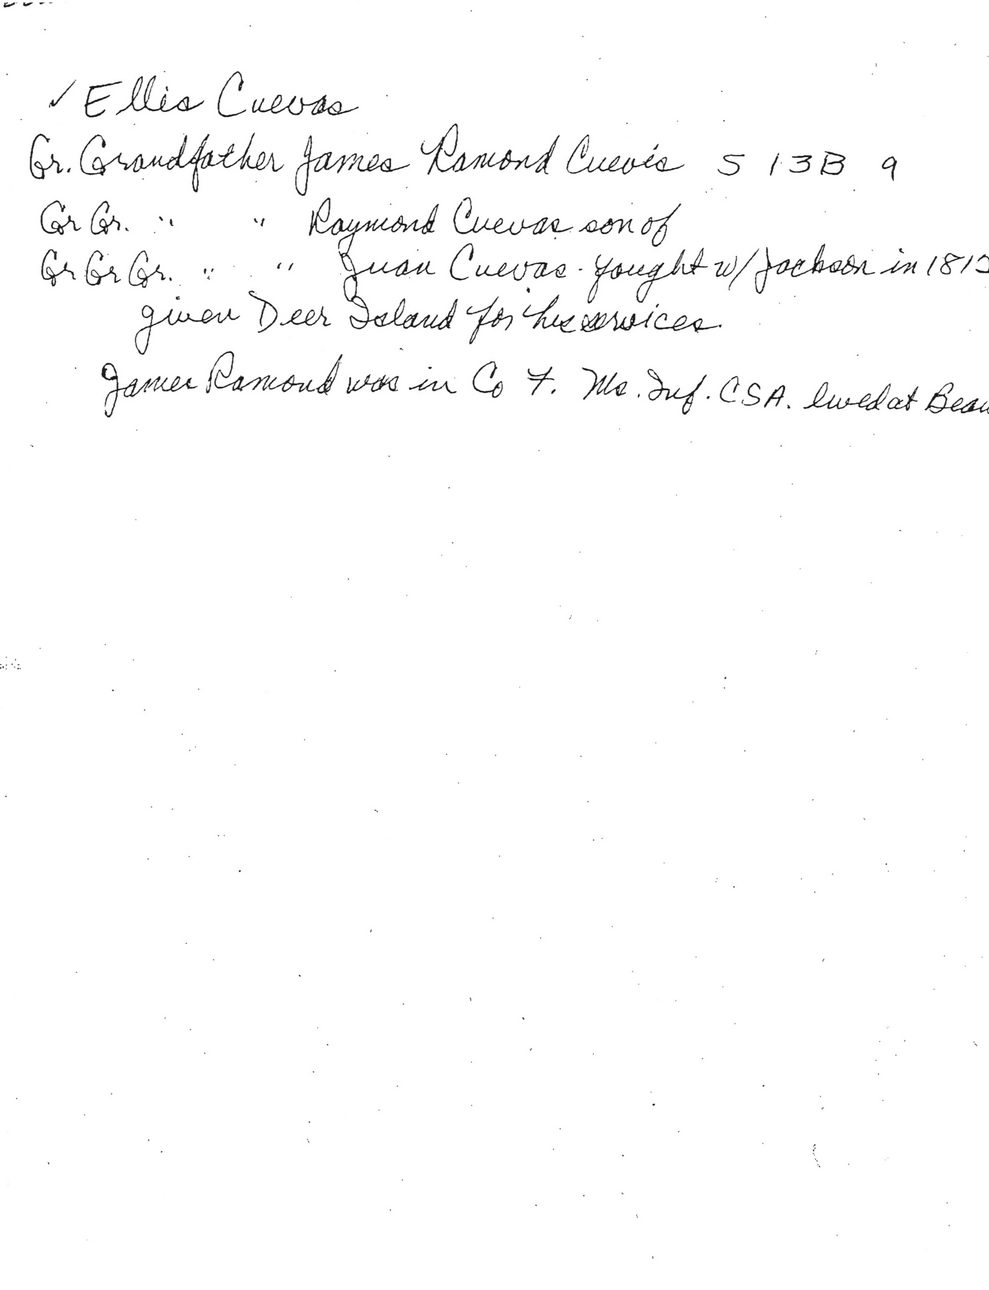 ✓ Ellis Cuevas
Gr. Grandfather James Ramond Cuevis S 13B 9
Gr Gr. " " Raymond Cuevas son of
Gr Gr Gr. " " Juan Cuevas - fought w/ Jackson in 181
given Deer Island for his services.
James Ramond was in Co F. Ms. Inf. CSA. lived at Beau